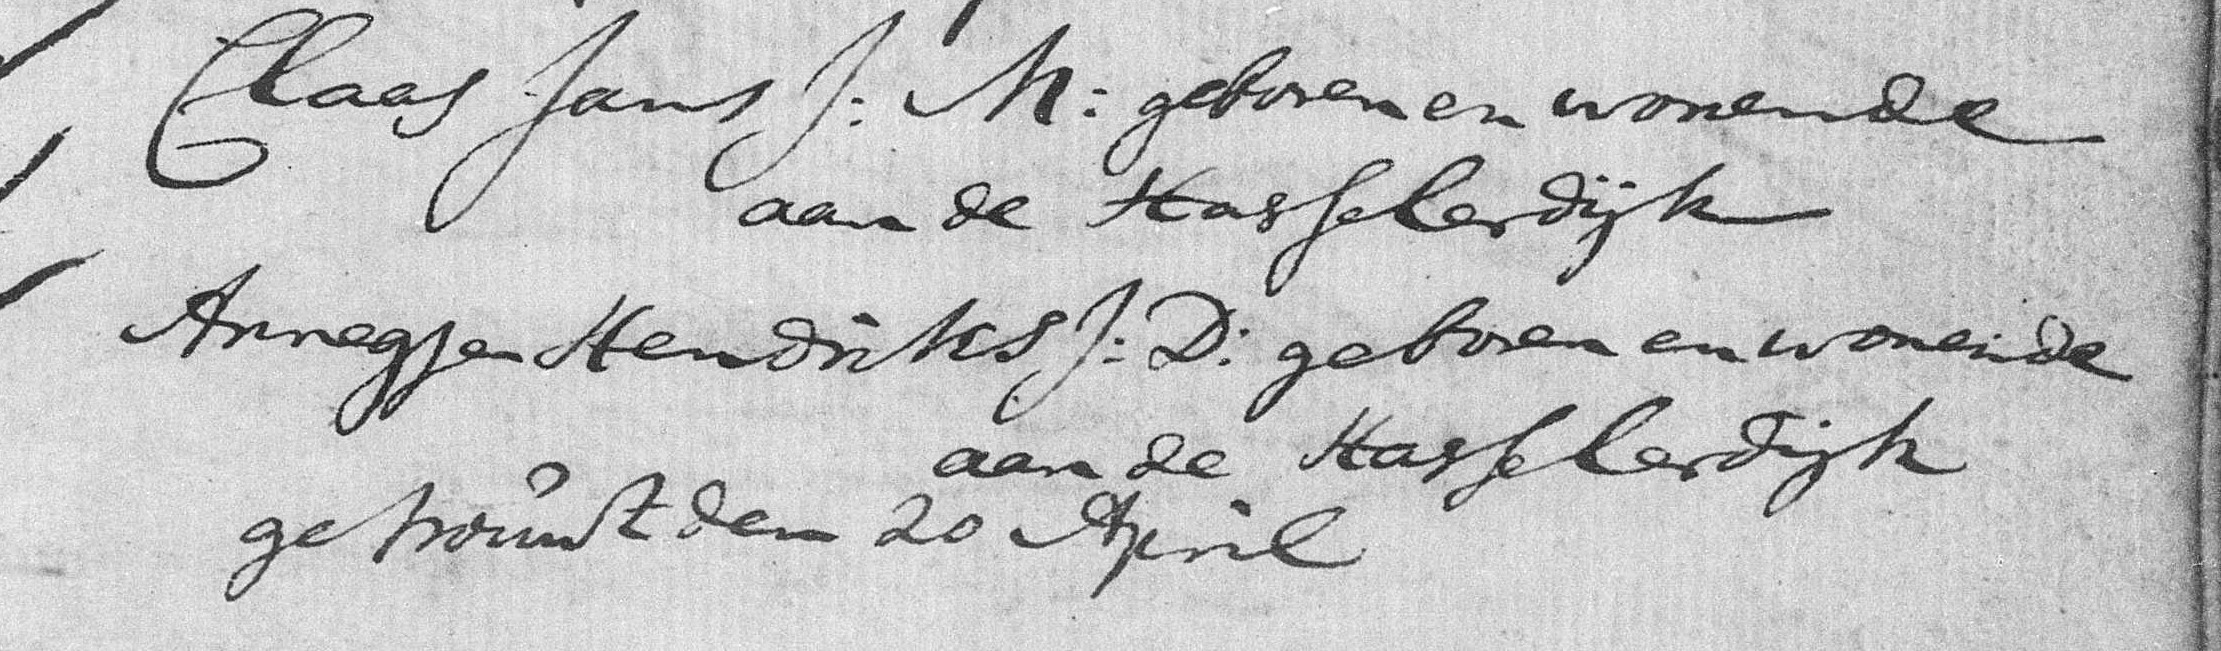 Claas Jans J: M: geboren en wonende
aan de Hasselerdijk
Annegjen Hendriks J: D: geboren en wonende
aan de Hasselerdijk
getrouwt den 20 April